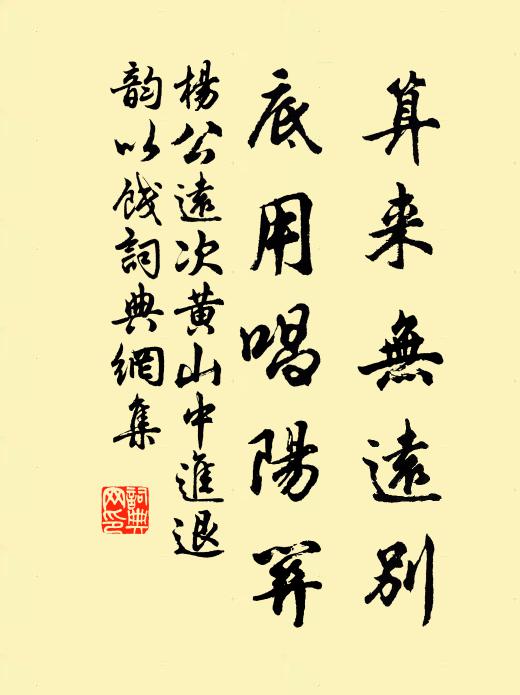 算来無遠別
底用唱陽關
楊公遠次黄山中進退
韵以餞詞典網集
詞典网印